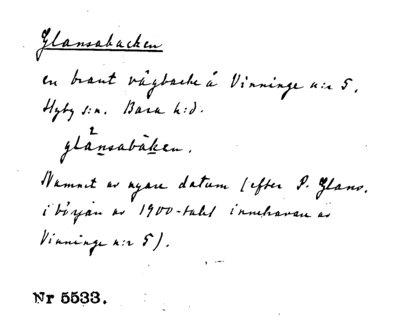 Glansabacken
en brant vägbacke å Vinninge n:r 5,
Hyby s:n. Bara h:d.
glänsabäken.
Namnet av nyare datum (efter P. Glans,
i början av 1900-talet innehavare av
Vinninge n:r 5).
Nr 5533.